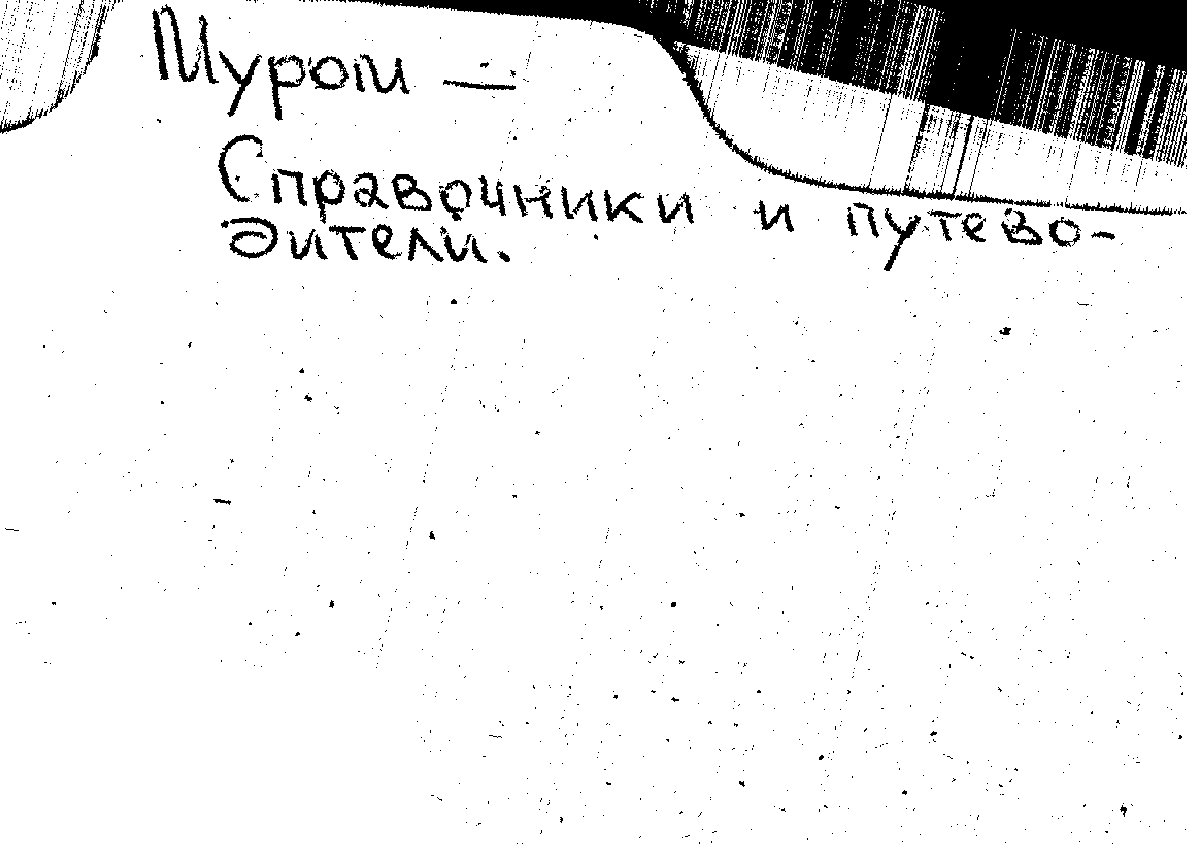 Муром —
Справочники и путево-
дители.